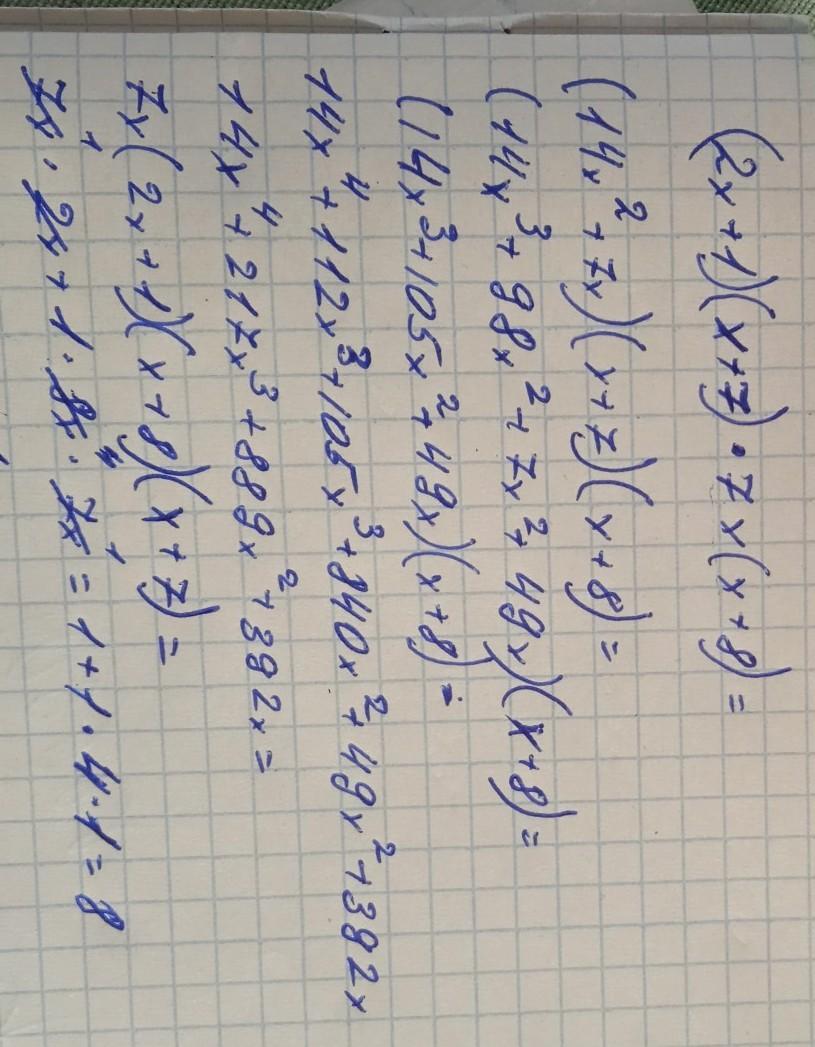 (2x+1)(x+7)·7x(x+8)=
(14x²+7x)(x+7)(x+8)=
(14x³+98x²+7x²+49x)(x+8)=
(14x³+105x²+49x)(x+8)=
14x⁴+112x³+105x³+840x²+49x²+392x
14x⁴+217x³+889x²+392x=
7x(2x+1)(x+8)(x+7)=
7x·2x+1·8x·7x=1+1·4·1=8